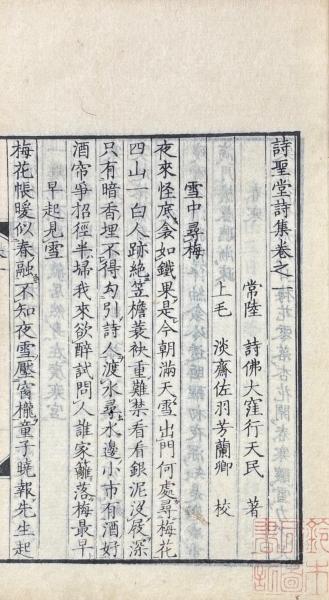 詩聖堂詩集卷之一
常陸　詩佛大窪行天民　著
上毛　淡齋佐羽芳蘭卿　校
雪中尋梅
夜來怪底衾如鐵果是今朝滿天雪出門何處尋梅花
四山一白人跡絶笠檐蓑袂重難禁看看銀泥沒屐深
只有暗香埋不得勾引詩人渡水尋水邊小市有酒好
酒帘爭招徑半掃我來欲醉試問人誰家籬落梅最早
早起見雪
梅花帳暖似春融不知夜雪壓窗櫳童子曉報先生起